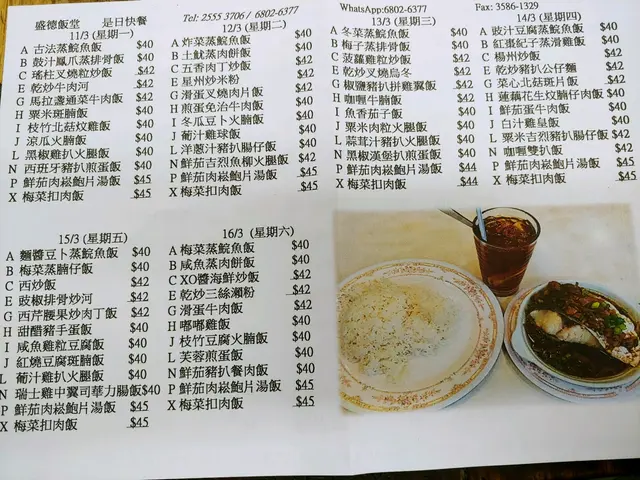 盛德飯堂 是日快餐 Tel: 2555 3706 / 6802-6377 WhatsApp:6802-6377 Fax: 3586-1329
11/3 (星期一)
A 古法蒸鯇魚飯 $40
B 鼓汁鳳爪蒸排骨飯 $40
C 瑤柱叉燒粒炒飯 $42
E 乾炒牛肉河 $42
G 馬拉盞通菜牛肉飯 $42
H 粟米斑腩飯 $40
I 枝竹北菇炆雞飯 $40
J 涼瓜火腩飯 $40
L 黑椒雞扒火腿飯 $40
N 西班牙豬扒煎蛋飯 $40
P 鮮茄肉崧鮑片湯飯 $45
X 梅菜扣肉飯 $45
12/3 (星期二)
A 炸菜蒸鯇魚飯 $40
B 土魷蒸肉餅飯 $40
C 五香肉丁炒飯 $42
E 星州炒米粉 $42
G 滑蛋叉燒肉片飯 $42
H 煎蛋免治牛肉飯 $40
I 冬瓜豆卜火腩飯 $40
J 葡汁雞球飯 $40
L 洋蔥汁豬扒腸仔飯 $40
N 鮮茄吉烈魚柳火腿飯 $42
P 鮮茄肉崧鮑片湯飯 $45
X 梅菜扣肉飯 $45
13/3 (星期三)
A 冬菜蒸鯇魚飯 $40
B 梅子蒸排骨飯 $40
C 菠蘿雞粒炒飯 $42
E 乾炒叉燒烏冬 $42
G 椒鹽豬扒拼雞翼飯 $42
H 咖喱牛腩飯 $42
I 魚香茄子飯 $40
J 粟米肉粒火腿飯 $40
L 蒜茸汁豬扒火腿飯 $40
N 黑椒漢堡扒煎蛋飯 $40
P 鮮茄肉崧鮑片湯飯 $44
X 梅菜扣肉飯 $44
14/3 (星期四)
A 豉汁豆腐蒸鯇魚飯 $40
B 紅棗杞子蒸滑雞飯 $40
C 楊州炒飯 $42
E 乾炒豬扒公仔麵 $42
G 菜心北菇斑片飯 $42
H 蓮藕花生炆腩仔肉飯 $40
I 鮮茄蛋牛肉飯 $40
J 白汁雞皇飯 $40
L 粟米吉烈豬扒腸仔飯 $42
N 咖喱雙扒飯 $42
P 鮮茄肉崧鮑片湯飯 $45
X 梅菜扣肉飯 $45
15/3 (星期五)
A 麵醬豆卜蒸鯇魚飯 $40
B 梅菜蒸腩仔飯 $40
C 西炒飯 $42
E 豉椒排骨炒河 $42
G 西芹腰果炒肉丁飯 $42
H 甜醋豬手蛋飯 $40
I 咸魚雞粒豆腐飯 $40
J 紅燒豆腐斑腩飯 $40
L 葡汁雞扒火腿飯 $40
N 瑞士雞中翼司華力腸飯$40
P 鮮茄肉崧鮑片湯飯 $45
X 梅菜扣肉飯 $45
16/3 (星期六)
A 梅菜蒸鯇魚飯 $40
B 咸魚蒸肉餅飯 $40
C XO醬海鮮炒飯 $42
E 乾炒三絲瀨粉 $42
G 滑蛋牛肉飯 $42
H 嘟嘟雞飯 $40
J 枝竹豆腐火腩飯 $40
L 芙蓉煎蛋飯 $40
N 鮮茄豬扒餐肉飯 $40
P 鮮茄肉崧鮑片湯飯 $45
X 梅菜扣肉飯 $45